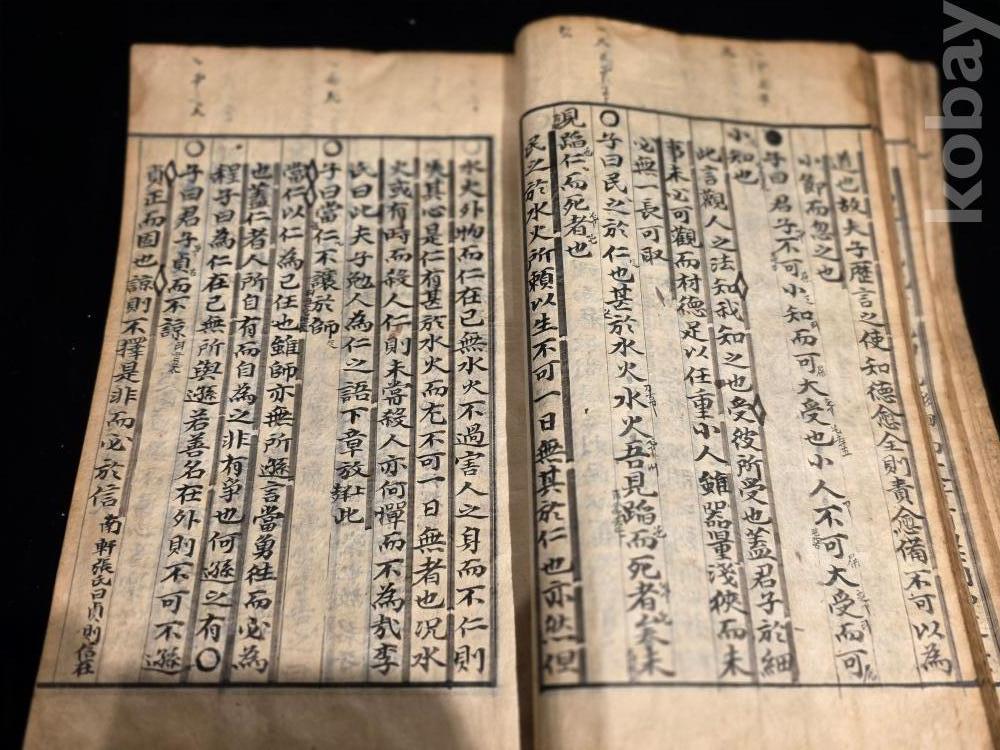 道也故夫子歷言之使知德愈全則責愈備不可以為
小節而忽之也
子曰君子不可小知而可大受也小人不可大受而可
小知也
此言觀人之法知我知之也受彼所受也蓋君子於細
事未必可觀而材德足以任重小人雖器量淺狹而未
必無一長可取
子曰民之於仁也甚於水火水火吾見蹈而死者矣未
見蹈仁而死者也
民之於水火所賴以生不可一日無其於仁也亦然但
水火外物而仁在己無水火不過害人之身而不仁則
失其心是仁有甚於水火而尤不可一日無者也況水
火或有時而殺人仁則未嘗殺人亦何憚而不為哉李
氏曰此夫子勉人為仁之語下章放此
子曰當仁不讓於師
當仁以仁為己任也雖師亦無所遜言當勇往而必為
也蓋仁者人所自有而自為之非有爭也何遜之有
程子曰為仁在己無所與遜若善名在外則不可不遜
子曰君子貞而不諒
貞正而固也諒則不擇是非而必於信南軒張氏曰貞則信在
kobay